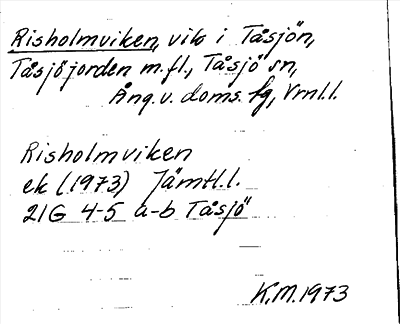 Risholmviken, vik i Tåsjön,
Tåsjöjorden m.fl., Tåsjö sn,
Ång. v. doms. fg, Vrnl.l.
Risholmviken
ek (1973) Jämtl.l.
21G 4-5 a-b Tåsjö
K.M. 1973